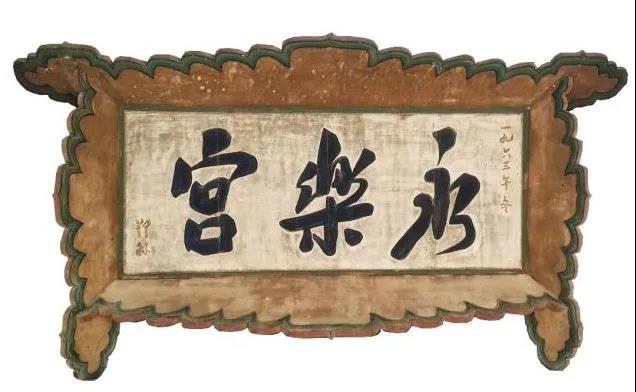 一九六三年冬
永樂宮